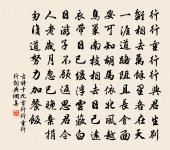 行行重行行與君生別
離相去萬餘里各在天
一涯道路阻且長會面
安可知胡馬依北風越
鳥巢南枝相去日已遠
衣帶日已緩浮雲蔽白
日遊子不顧返思君令
人老歲月忽已晚棄捐
勿復道努力加餐飯
古詩十九首行行重行
行